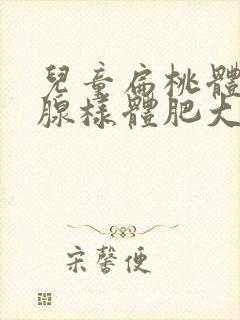 兒童扁桃體
腺樣體肥大
宋馨便